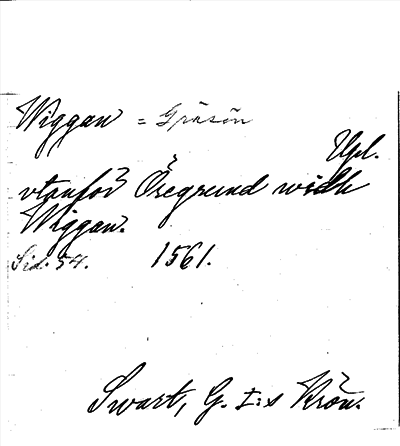 Wiggan = Gräsön
Upl.
vtanför Öregrund widh
Wiggan.
Sid. 54. 1561.
Swart, G. I:s Krön.